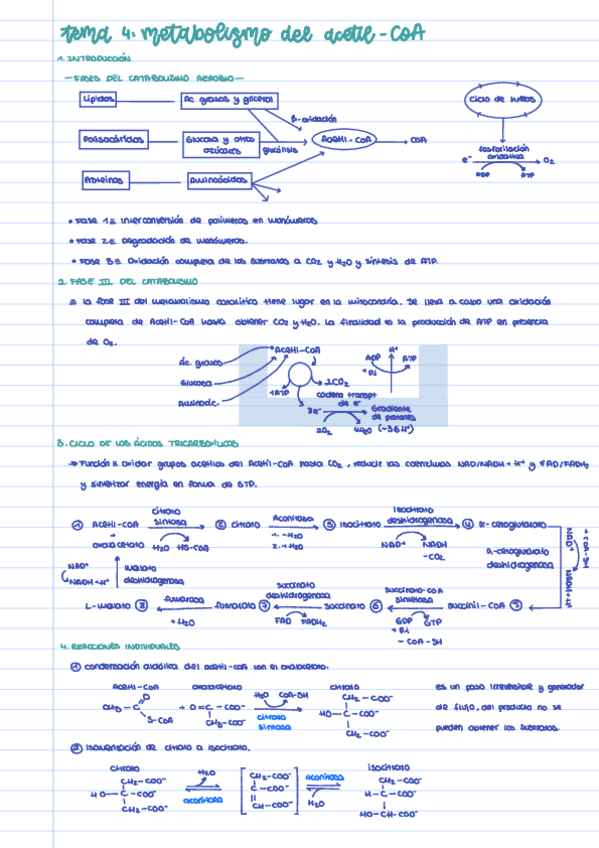 tema 4: metabolismo del acetil-CoA
1. INTRODUCCIÓN
— FASES DEL CATABOLISMO AEROBIO —
Lípidos
Ac. grasos y glicerol
Ciclo de Krebs
β-oxidación
Polisacáridos
Glucosa y otros azúcares
glucólisis
Acetil-CoA
CoA
fosforilación oxidativa
e⁻ O₂
ADP ATP
Proteínas
Aminoácidos
• Fase 1 ≡ Interconversión de polímeros en monómeros
• Fase 2 ≡ Degradación de monómeros.
• Fase 3 ≡ Oxidación completa de los sustratos a CO₂ y H₂O y síntesis de ATP.
2. FASE III DEL CATABOLISMO
≡ La fase III del metabolismo catabólico tiene lugar en la mitocondria. Se lleva a cabo una oxidación
completa de Acetil-CoA hasta obtener CO₂ y H₂O. La finalidad es la producción de ATP en presencia
de O₂.
Ac. grasos
Glucosa
Aminoác.
Acetil-CoA
1ATP
2CO₂
cadena transpt de e⁻
ADP + Pi
H⁺
ATP
8e⁻
2O₂
4H₂O
Gradiente de protones
(~36H⁺)
3. CICLO DE LOS ÁCIDOS TRICARBOXÍLICOS
→ Función ≡ oxidar grupos acetilos del Acetil-CoA hasta CO₂, reducir las coenzimas NAD/NADH + H⁺ y FAD/FADH₂
y sintetizar energía en forma de GTP.
① Acetil-CoA + oxalacetato
citrato sintasa
H₂O HS-CoA
② citrato
Aconitasa
1. -H₂O
2. +H₂O
③ Isocitrato
isocitrato deshidrogenasa
NAD⁺ NADH
-CO₂
④ α-cetoglutarato
α-cetoglutarato deshidrogenasa
+ COA-SH
NAD⁺
NADH+H⁺
NAD⁺
NADH+H⁺
malato deshidrogenasa
L-malato ⑧
fumarasa
+H₂O
fumarato ⑦
succinato deshidrogenasa
FAD FADH₂
succinato ⑥
succinato-CoA sintetasa
GDP + Pi
GTP
- COA-SH
succinil-CoA ⑤
4. REACCIONES INDIVIDUALES
① condensación aldólica del acetil-CoA con el oxalacetato.
Acetil-CoA
oxalacetato
H₂O COA-SH
citrato
CH₃ – C
O
S-CoA
+ O = C – COO⁻
CH₂-COO⁻
citrato sintasa
CH₂ – COO⁻
HO – C – COO⁻
CH₂ – COO⁻
es un paso irreversible y generador
de flujo, del producto no se
pueden obtener los sustratos.
② Isomerización de citrato a isocitrato.
citrato
CH₂-COO⁻
HO – C – COO⁻
CH₂-COO⁻
H₂O
aconitasa
CH₂-COO⁻
C – COO⁻
CH-COO⁻
aconitasa
H₂O
isocitrato
CH₂-COO⁻
H – C – COO⁻
HO-CH-COO⁻